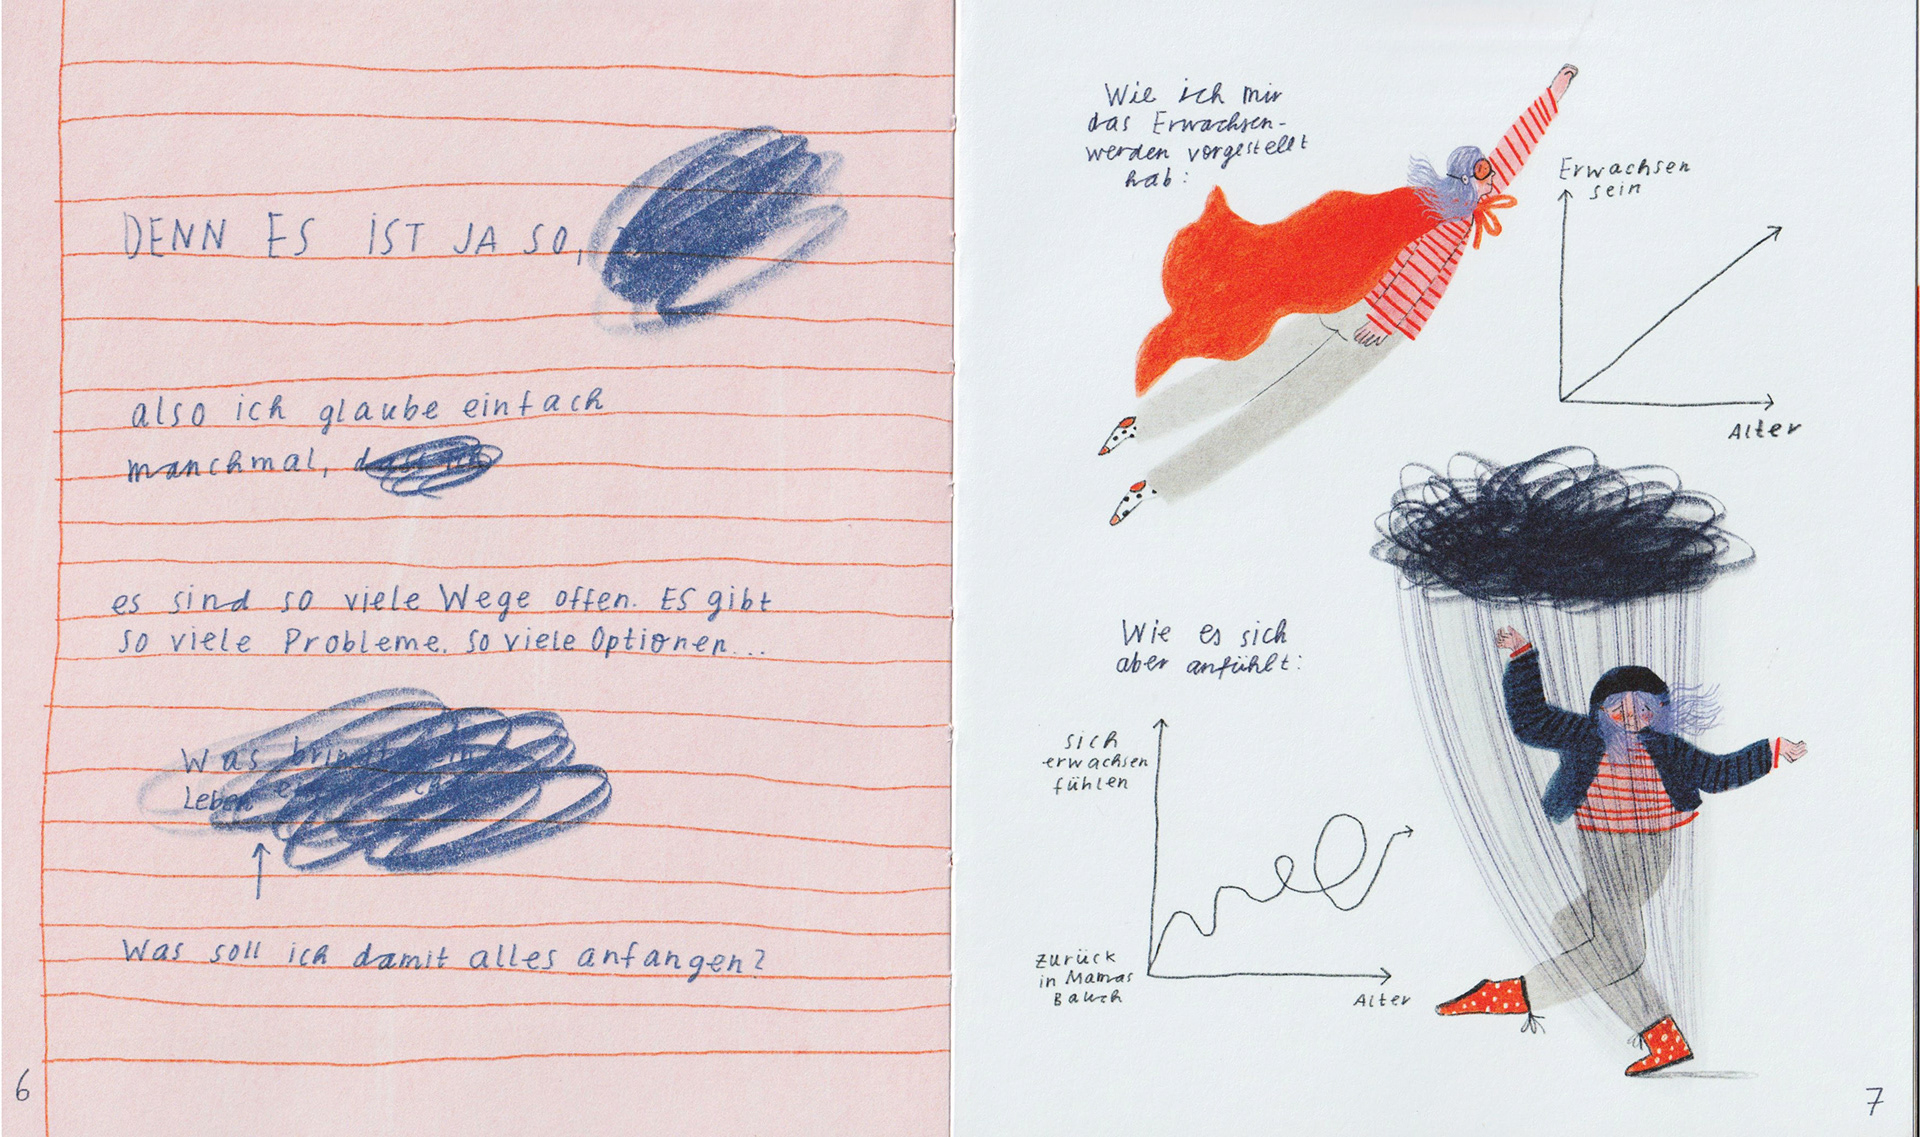 DENN ES IST JA SO,
also ich glaube einfach
manchmal,
es sind so viele Wege offen. ES gibt
so viele Probleme. So viele Optionen...
Was
Leben
Was soll ich damit alles anfangen?
6
Wie ich mir
das Erwachsen-
werden vorgestellt
hab:
Erwachsen
sein
Alter
Wie es sich
aber anfühlt:
sich
erwachsen
fühlen
zurück
in Mamas
Bauch
Alter
7